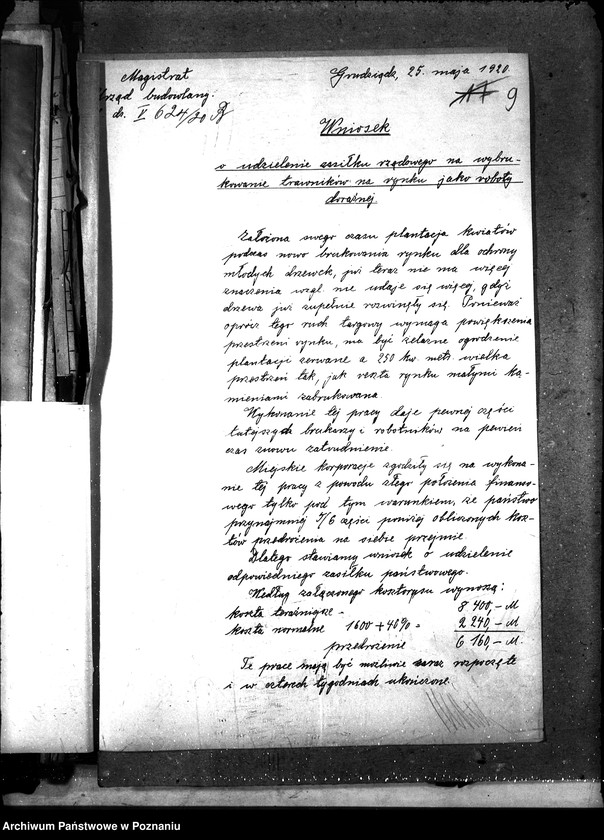 Magistrat
Urząd budowlany.
dz. V 624/20 R
Grudziądz, 25. maja 1920.
9
Wniosek
o udzielenie zasiłku rządowego na wybru-
kowanie trawników na rynku jako roboty
doraźnej.
Założona swego czasu plantacja kwiatów
podczas nowo brukowania rynku dla ochrony
młodych drzewek, już teraz nie ma więcej
znaczenia wzgl. nie udaje się więcej, gdyż
drzewa już zupełnie rozwinęły się. Ponieważ
oprócz tego ruch targowy wymaga powiększenia
przestrzeni rynku, ma być żelazne ogrodzenie
plantacji zerwane a 250 kw. metr. wielka
przestrzeń tak, jak reszta rynku małymi ka-
mieniami zabrukowana.
Wykonanie tej pracy daje pewnej części
tutejszych brukarzy i robotników na pewien
czas znowu zatrudnienie.
Miejskie korporacje zgodziły się na wykona-
nie tej pracy z powodu złego położenia finanso-
wego tylko pod tym warunkiem, że państwo
przynajmniej 5/6 części poniżej obliczonych kosz-
tów przedrożenia na siebie przejmie.
Dlatego stawiamy wniosek o udzielenie
odpowiedniego zasiłku państwowego.
Według załączonego kosztorysu wynoszą:
koszta teraźniejsze - 8 400,- M
koszta normalne 1600 + 40% = 2 240,- M
przedrożenie 6 160,- M.
Te prace mają być możliwie zaraz rozpoczęte
i w czterech tygodniach ukończone.
Archiwum Państwowe w Poznaniu